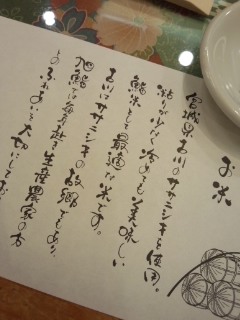 お米
宮城県古川のササニシキを使用。
粘りが少なく冷めても美味しい
鮨米として最適な米です。
古川はササニシキの故郷でもあり、
旭鮨では毎年赴き生産農家の方
とのふれあいを大切にして